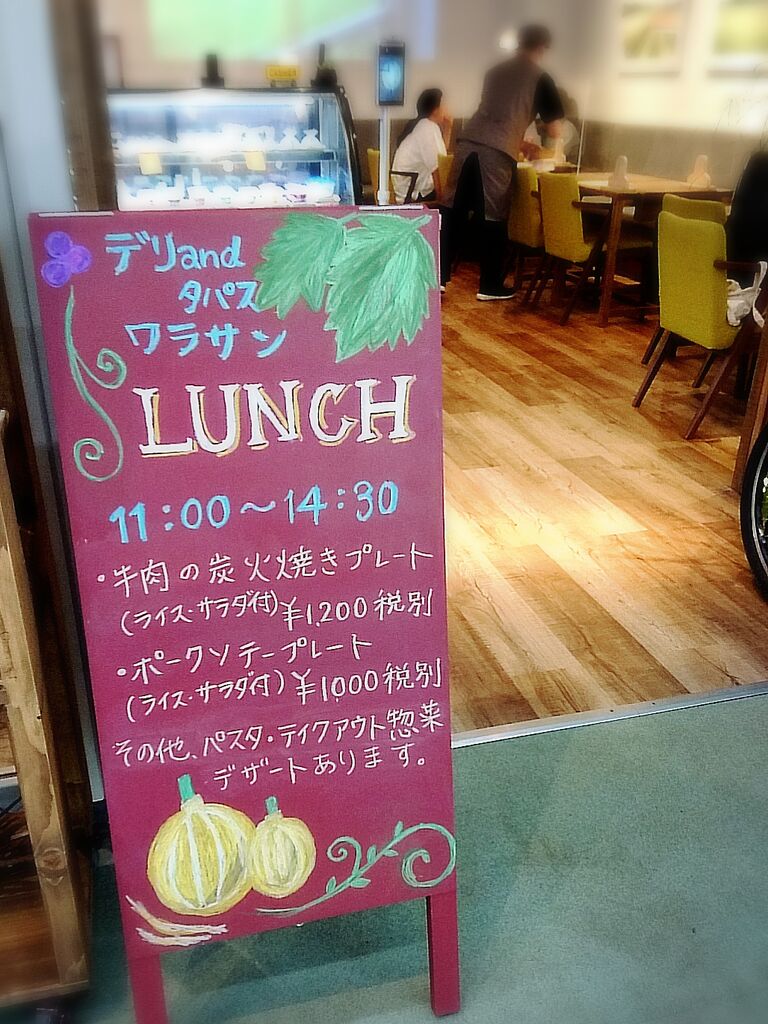 デリand
タパス
ワラサン
LUNCH
11:00～14:30
・牛肉の炭火焼きプレート
(ライス・サラダ付)¥1,200税別
・ポークソテープレート
(ライス・サラダ付)¥1000税別
その他、パスタ・テイクアウト惣菜
デザートあります。